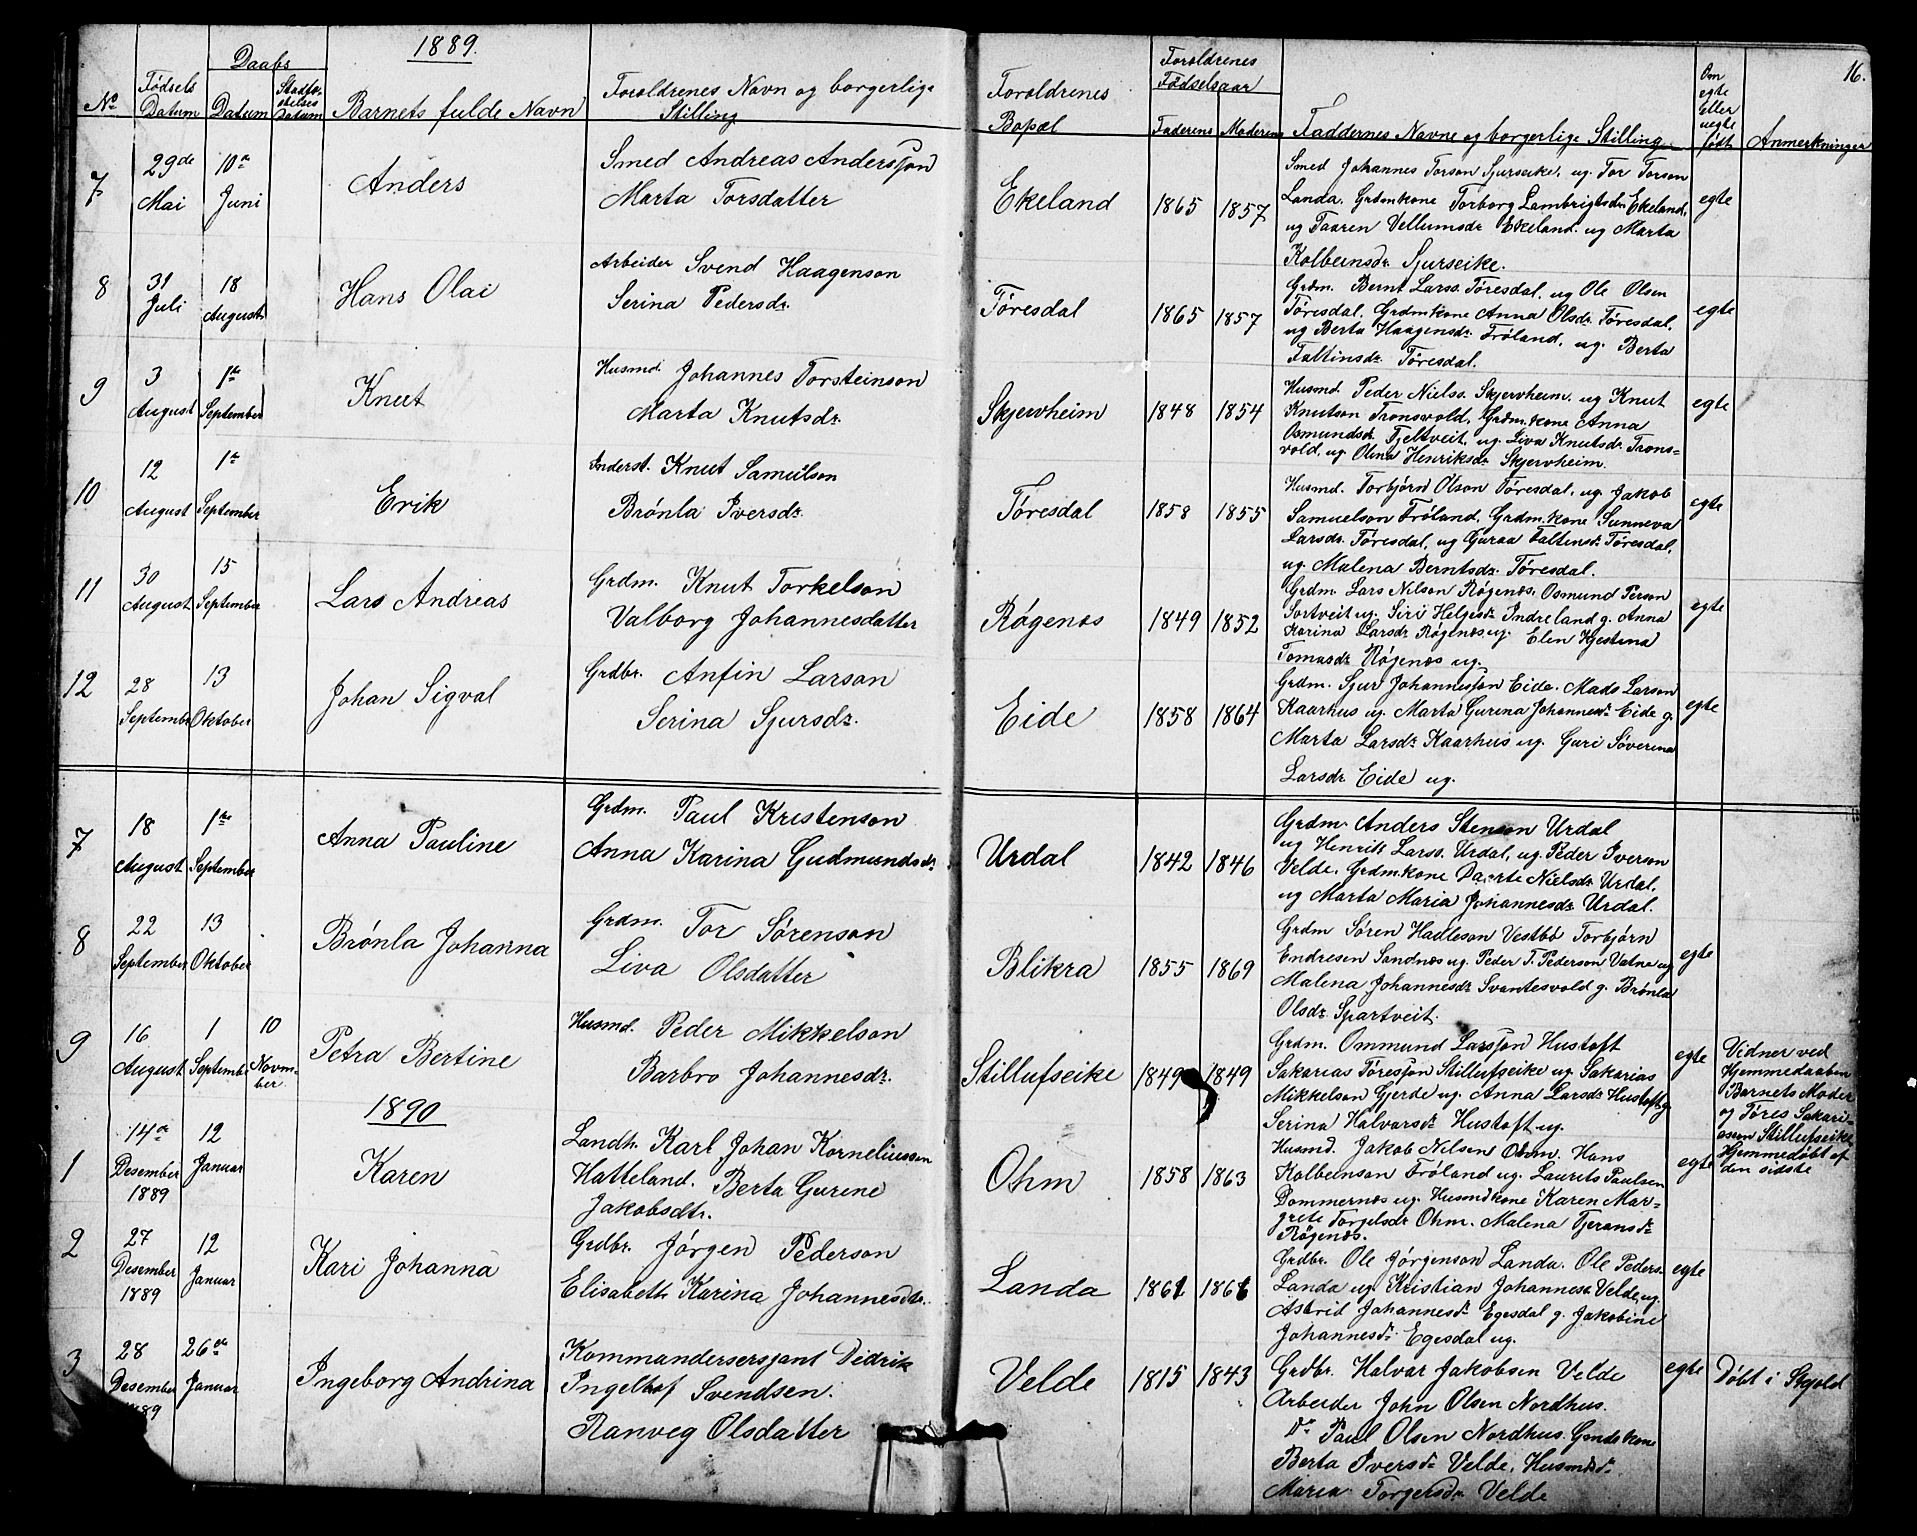 1889.
No
Fødsels Datum
Daabs
Datum
Stadfæstelses Datum
Barnets fulde Navn
Foroldrenes Navn og borgerlige
Stilling
Foroldrenes
Bopæl
Foroldrenes
Fødselsaar
Faderens Moderens
Faddernes Navne og borgerlige Stilling
Om egte Eller uegte født
Anmerkninger
16.
7
29de Mai
10de Juni
Anders
Smed Andreas Andersson
Marta Torsdatter
Ekeland
1865 1857
Smed Johannes Torson Sjurseike, ug. Tor Torson
Landa, Grdmkone Torborg Lambrigtsdr. Ekeland,
ug Taaren Vellumsdr Ekeland. ug Marta
Kolbeinsdr. Sjurseike.
egte
8
31 Juli
18 August
Hans Olai
Arbeider Svend Haagenson
Serina Pedersdr.
Tøresdal
1865 1857
Grdm. Bernt Larss. Tøresdal, ug Ole Olsen
Tøresdal, Grdmkone Anna Olsdr. Tøresdal,
ug Berta Haagensdr. Frøland, ug. Berta
Faltinsdr. Tøresdal.
egte
9
3 August
1ste September
Knut
Husmd. Johannes Torsteinson
Marta Knutsdr.
Skjervheim
1848 1854
Husmd. Peder Nielss. Skjervheim. ug Knut
Knutson Tronsvold, Grdm.kone Anna
Osmundsdr. Fjeltveit, ug. Liva Knutsdr. Trons-
vold, ug Olina Henriksdr. Skjervheim.
egte
10
12 August
1ste September
Erik
Inderst. Knut Samulson
Brønla Iversdr.
Tøresdal
1858 1855
Husmd. Torbjørn Olson Tøresdal, ug. Jakob
Samuelson Frøland, Grdm.kone Sunneva
Larsdr. Tøresdal, ug Guraa Faltensdr. Tøresdal,
ug. Malena Berntsdr. Tøresdal.
egte
11
30 August
15 September
Lars Andreas
Grdm. Knut Torkelson
Valborg Johannesdatter
Røgenæs
1849 1852
Grdm. Lars Nilson Røgenæs. Osmund Person
Sortveit ug. Siri Helgesdr. Indreland g. Anna
Karina Larsdr Røgenæs ug. Elen Kjestina
Tomasdr. Røgenæs ug.
egte
12
28 September
13 Oktober
Johan Sigval
Grdbr. Anfin Larson
Serina Sjursdr.
Eide
1858 1864
Grdm. Sjur Johannesson Eide. Mads Larson
Kaarhus ug. Marta Gurina Johannesdr Eide g.
Marta Larsdr Kaarhus ug. Guri Søverina
Larsdr Eide ug.
egte
7
18 August
1ste September
Anna Pauline
Grdm. Paul Kristenson
Anna Karina Gudmundsdr.
Urdal
1842 1846
Grdm. Anders Stenson Urdal
ug Henrik Larss. Urdal, ug. Peder Iverson
Velde. Grdmkone Daarte Nielsdr Urdal.
ug Marta Maria Johannesdr Urdal.
8
22 September
13 Oktober
Brønla Johanna
Grdm. Tor Sørenson
Liva Olsdatter
Blikra
1855 1869
Grdm Søren Hadleson Vestbø Torbjørn
Endresen Sandnæs ug. Peder T. Pederson Vatne ug
Malena Johannesdr Svantesvold g. Brønla
Olsdr Spartveit.
egte
9
16 August
1 September
10 Novmber
Petra Bertine
Husmd. Peder Mikkelson
Barbro Johannesdr.
Stillufseike
1849 1849
Grdm. Ommund Larsson Hustoft
Sakarias Tøresson Stillufseike ug. Sakarias
Mikkelson Gjerde ug. Anna Larsdr Hustoft g
Serina Halvorsdr Hustoft ug.
egte
Vidner ved
Hjemmedaaben
Barnets Moder
og Tøres Sakari-
asen Stillufseike
Hjemmedøbt af
den sidste
1890
1
14de Desember 1889
12 Januar
Karen
Landh. Karl Johan Korneliussen
Hatteland. Berta Gurine
Jakobsdtr.
Ohm
1858 1863
Husmd. Jakob Nilsen Ohm. Hans
Kolbeinson Frøland ug. Laurits Paulsen
Dommernæs ug. Husmdkone Karen Mar-
grete Torgelsdr Ohm. Malena Tjeransdr
Røgenæs.
egte
2
27 Desember 1889
12 Januar
Kari Johanna
Grdbr. Jørgen Pederson
Elisabeth Karina Johannesdtr.
Landa
1861 1861
Grdbr. Ole Jørgenson Landa. Ole Peders.
Landa ug. Kristian Johanness. Velde, ug.
Astrid Johannesdr Egesdal g. Jakobine
Johannesdr. Egesdal ug.
egte
3
28 Desember 1889
26de Januar
Ingeborg Andrina
Kommandersersjant Didrik
Ingelhof Svendsen.
Ranveg Olsdatter
Velde
1815 1843
Grdbr. Halvar Jakobsen Velde
Arbeider John Olsen Nordhus.
Do Paul Olsen Nordhus. Gmdskone
Berta Iversdr Velde, Husmdsdr.
Maria Torgersdr Velde
egte
Døbt i Skjold